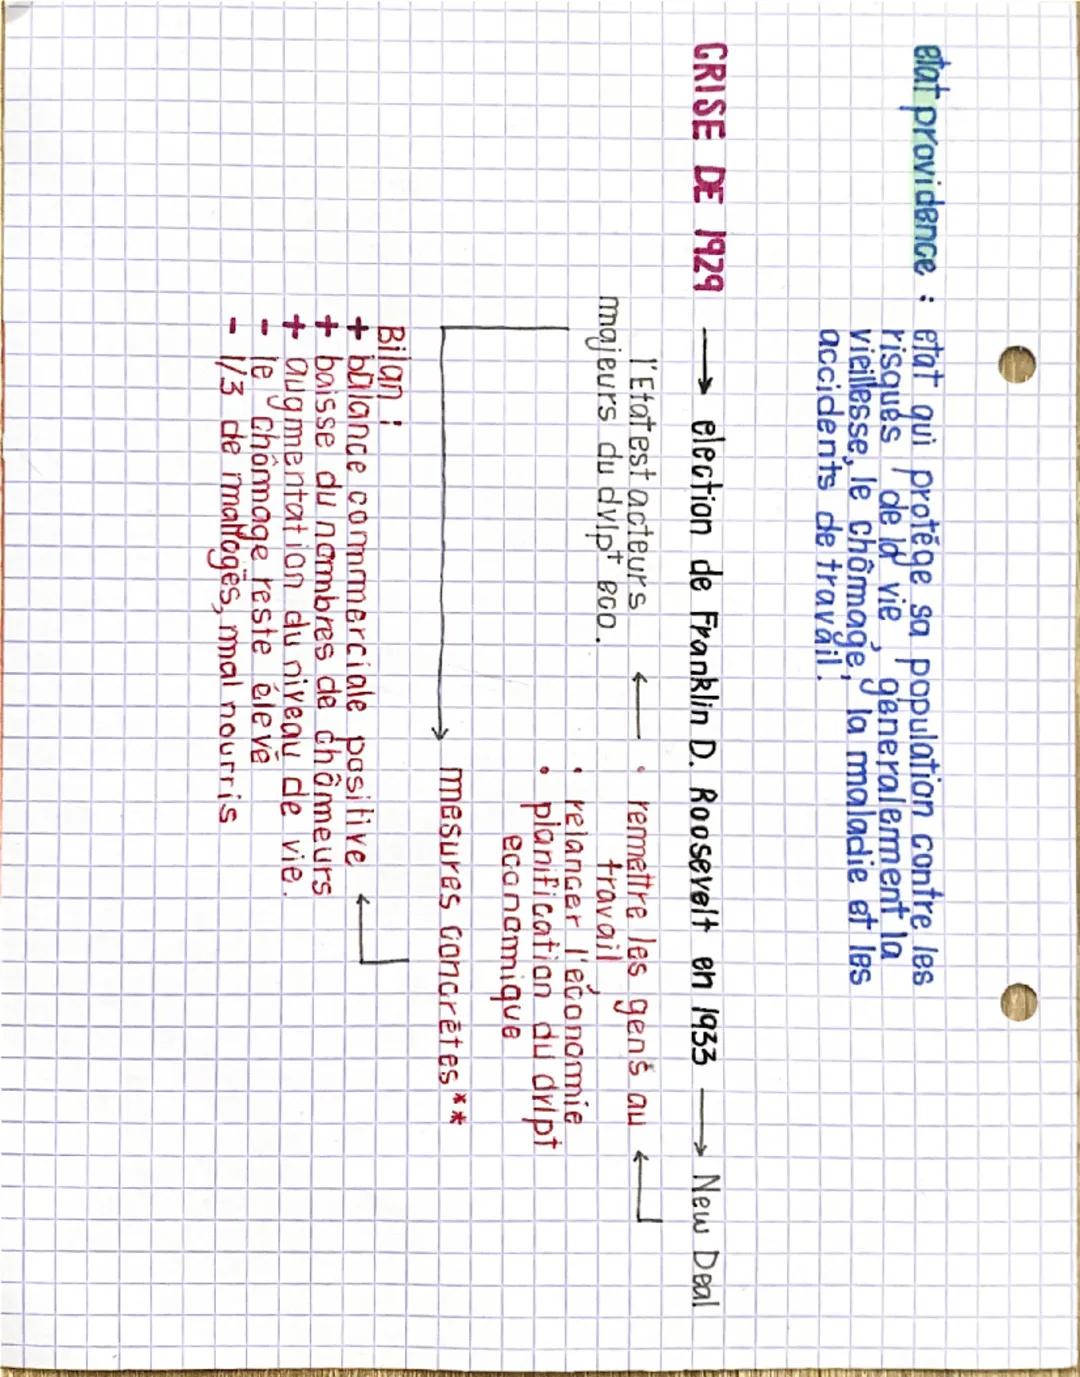 etat providence : etat qui protége sa population contre les
risques de la vie, generalement la
vieillesse, le chômage, la maladie et les
accidents de travail.
CRISE DE 1929 → election de Franklin D. Roosevelt en 1933 → New Deal
l'Etat est acteurs ← • remettre les gens au
majeurs du dvlpt eco. travail
• relancer l'économie
• planification du dvlpt
economique
mesures concrètes**
Bilan :
+ balance commerciale positive
+ baisse du nombres de chômeurs
+ augmentation du niveau de vie.
- le chômage reste élevé
- 1/3 de mallogés, mal nourris